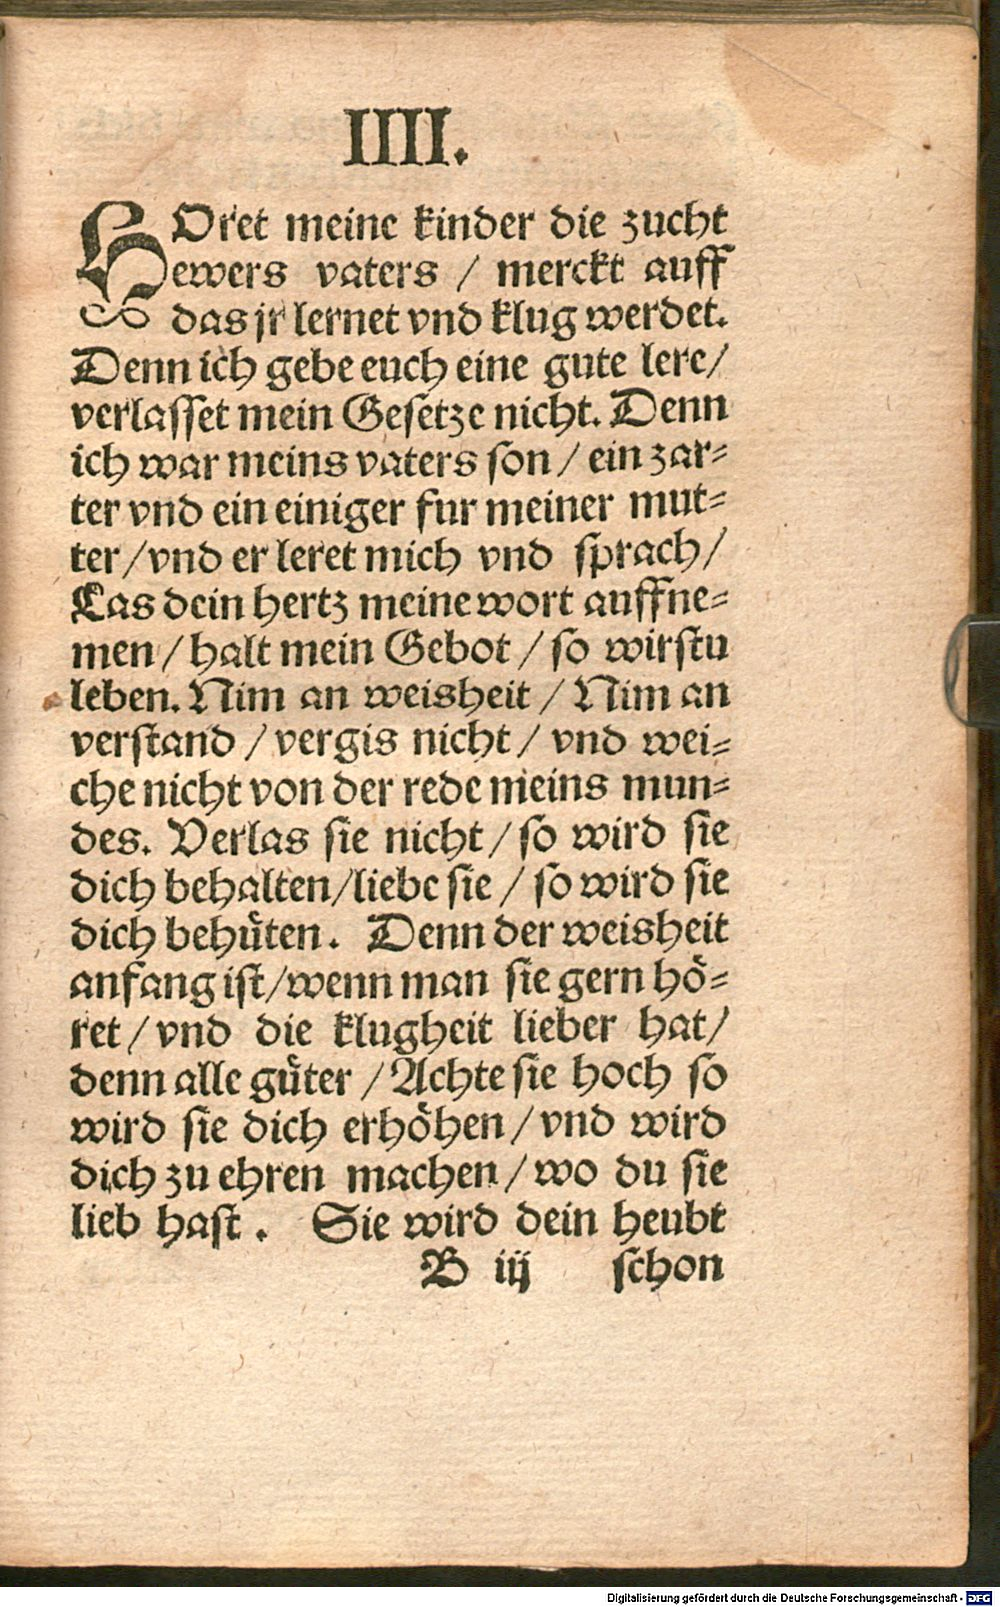 IIII.
HOret meine kinder die zucht
ewers vaters / merckt auff
das jr lernet vnd klug werdet.
Denn ich gebe euch eine gute lere/
verlasset mein Gesetze nicht. Denn
ich war meins vaters son / ein zar⸗
ter vnd ein einiger fur meiner mut⸗
ter / vnd er leret mich vnd sprach/
Las dein hertz meine wort auffne⸗
men / halt mein Gebot / so wirstu
leben. Nim an weisheit / Nim an
verstand / vergis nicht / vnd wei⸗
che nicht von der rede meins mun⸗
des. Verlas sie nicht / so wird sie
dich behalten/liebe sie / so wird sie
dich behuͤten. Denn der weisheit
anfang ist/wenn man sie gern hoͤ⸗
ret / vnd die klugheit lieber hat/
denn alle guͤter / Achte sie hoch so
wird sie dich erhoͤhen / vnd wird
dich zu ehren machen / wo du sie
lieb hast. Sie wird dein heubt
B iij schon
Digitalisierung gefördert durch die Deutsche Forschungsgemeinschaft - DFG